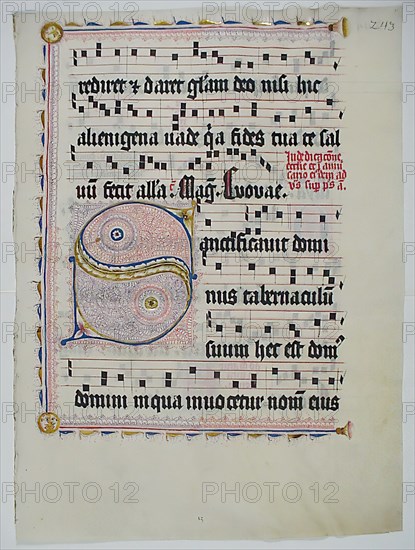 243
rediret & daret gl̄am deo nisi hic
alienigena uade q̄a fides tua te sal
uū fecit all'a. Maḡ. Euouae.
In dedicacōne
Sanctificauit domi
nus tabernaculū
suum hec est dom'
domini in qua inuocetur nom̄ eius
PHOTO 12